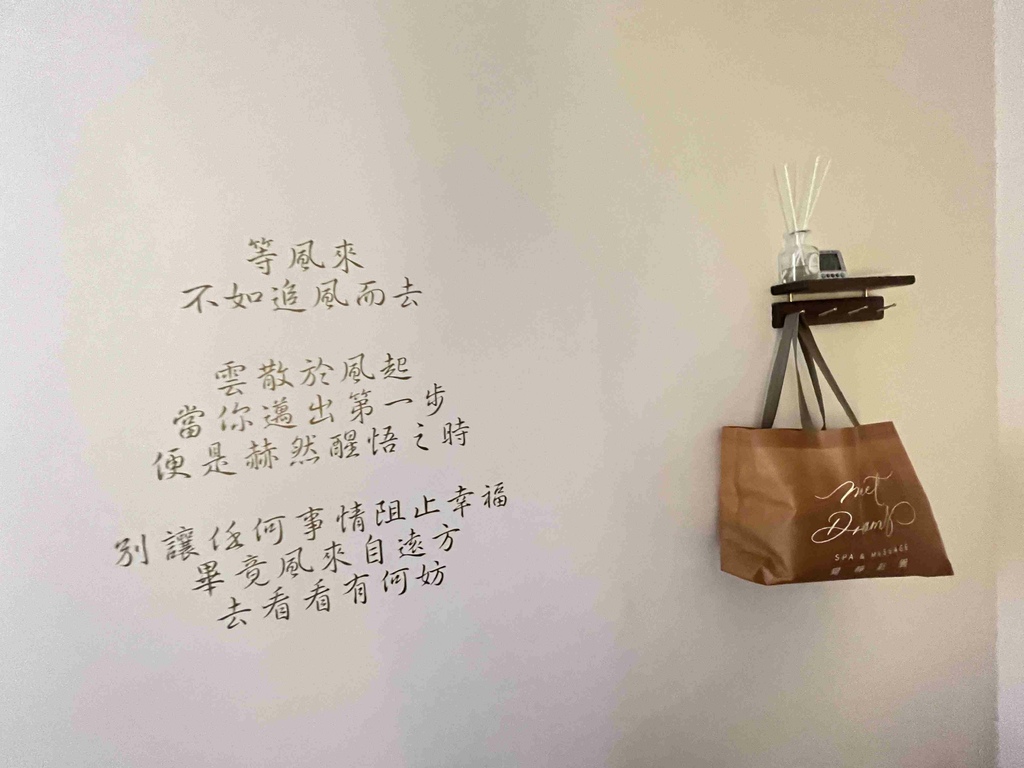 等風來
不如追風而去
雲散於風起
當你邁出第一步
便是赫然醒悟之時
別讓任何事情阻止幸福
畢竟風來自遠方
去看看有何妨
met
Dreams
SPA & MASSAGE